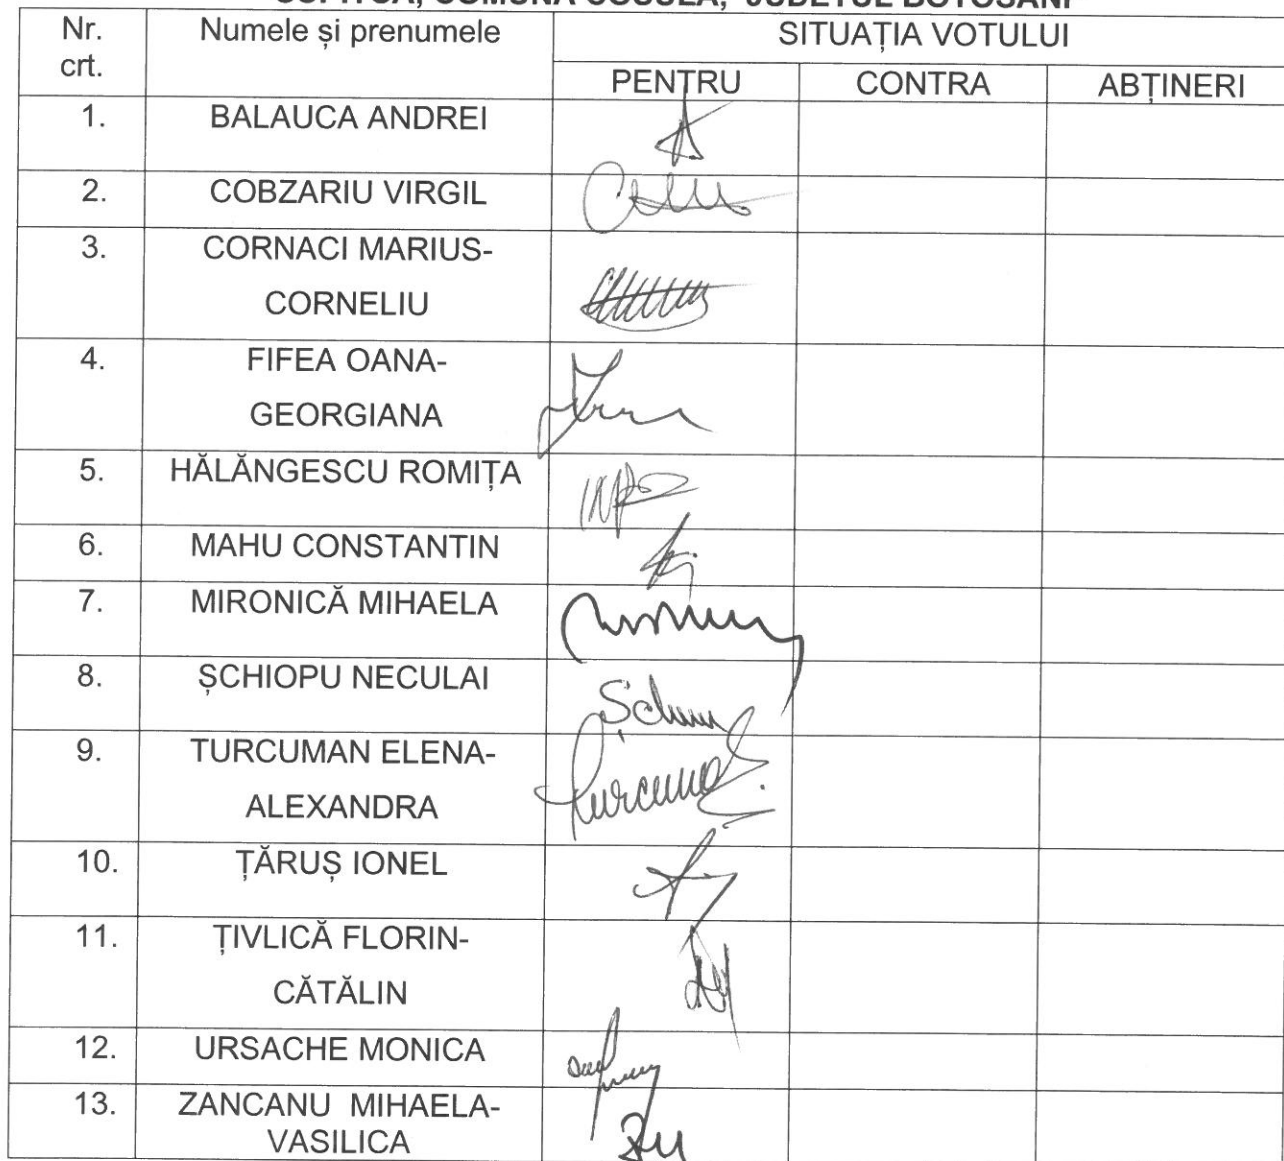 COMUNA COȘULA, JUDEȚUL BOTOȘANI
Nr. crt. Numele și prenumele SITUAȚIA VOTULUI
PENTRU CONTRA ABȚINERI
1. BALAUCA ANDREI
2. COBZARIU VIRGIL
3. CORNACI MARIUS-
CORNELIU
4. FIFEA OANA-
GEORGIANA
5. HĂLĂNGESCU ROMIȚA
6. MAHU CONSTANTIN
7. MIRONICĂ MIHAELA
8. ȘCHIOPU NECULAI
9. TURCUMAN ELENA-
ALEXANDRA
10. ȚĂRUȘ IONEL
11. ȚIVLICĂ FLORIN-
CĂTĂLIN
12. URSACHE MONICA
13. ZANCANU MIHAELA-
VASILICA